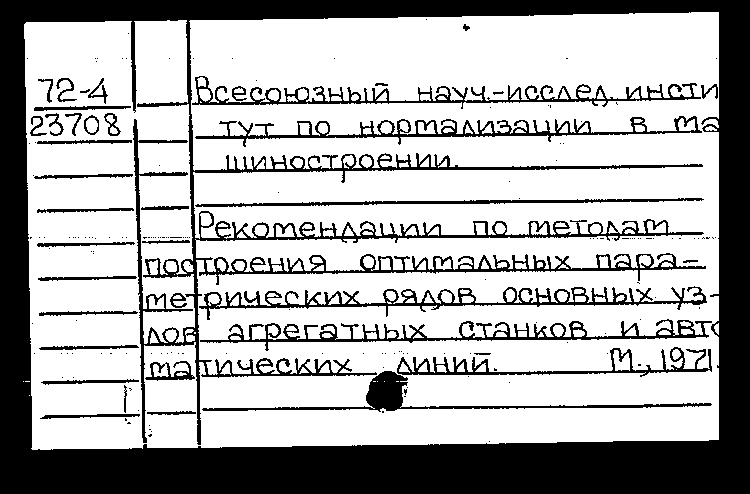 72-4
23708
Всесоюзный науч.-исслед. инсти
тут по нормализации в ма
шиностроении.
Рекомендации по методам
построения оптимальных пара-
метрических рядов основных уз-
лов агрегатных станков и авто
матических линий. М., 1971.